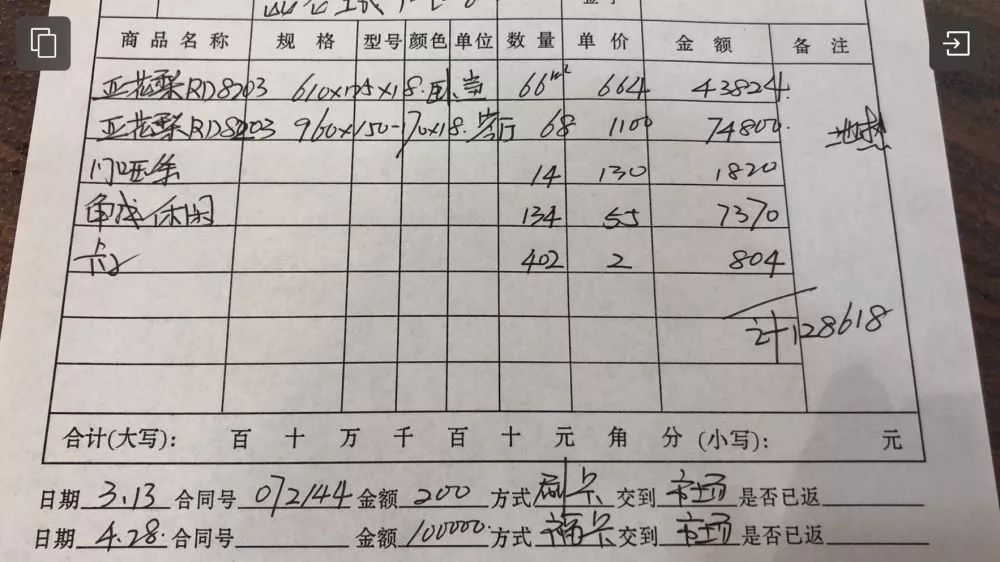 商品名称 规格 型号 颜色 单位 数量 单价 金额 备注
亚花梨RD8203 610×125×18. 卧室 66m² 664 43824
亚花梨RD8203 960×150-170×18. 客厅 68 1100 74800. 地热
门压条 14 130 1820
休闲 134 55 7370
402 2 804
计128618
合计(大写): 百 十 万 千 百 十 元 角 分 (小写): 元
日期 3.13 合同号 072144 金额 200 方式 刷卡 交到 市场 是否已返
日期 4.28. 合同号 金额 100000. 方式 卡 交到 市场 是否已返